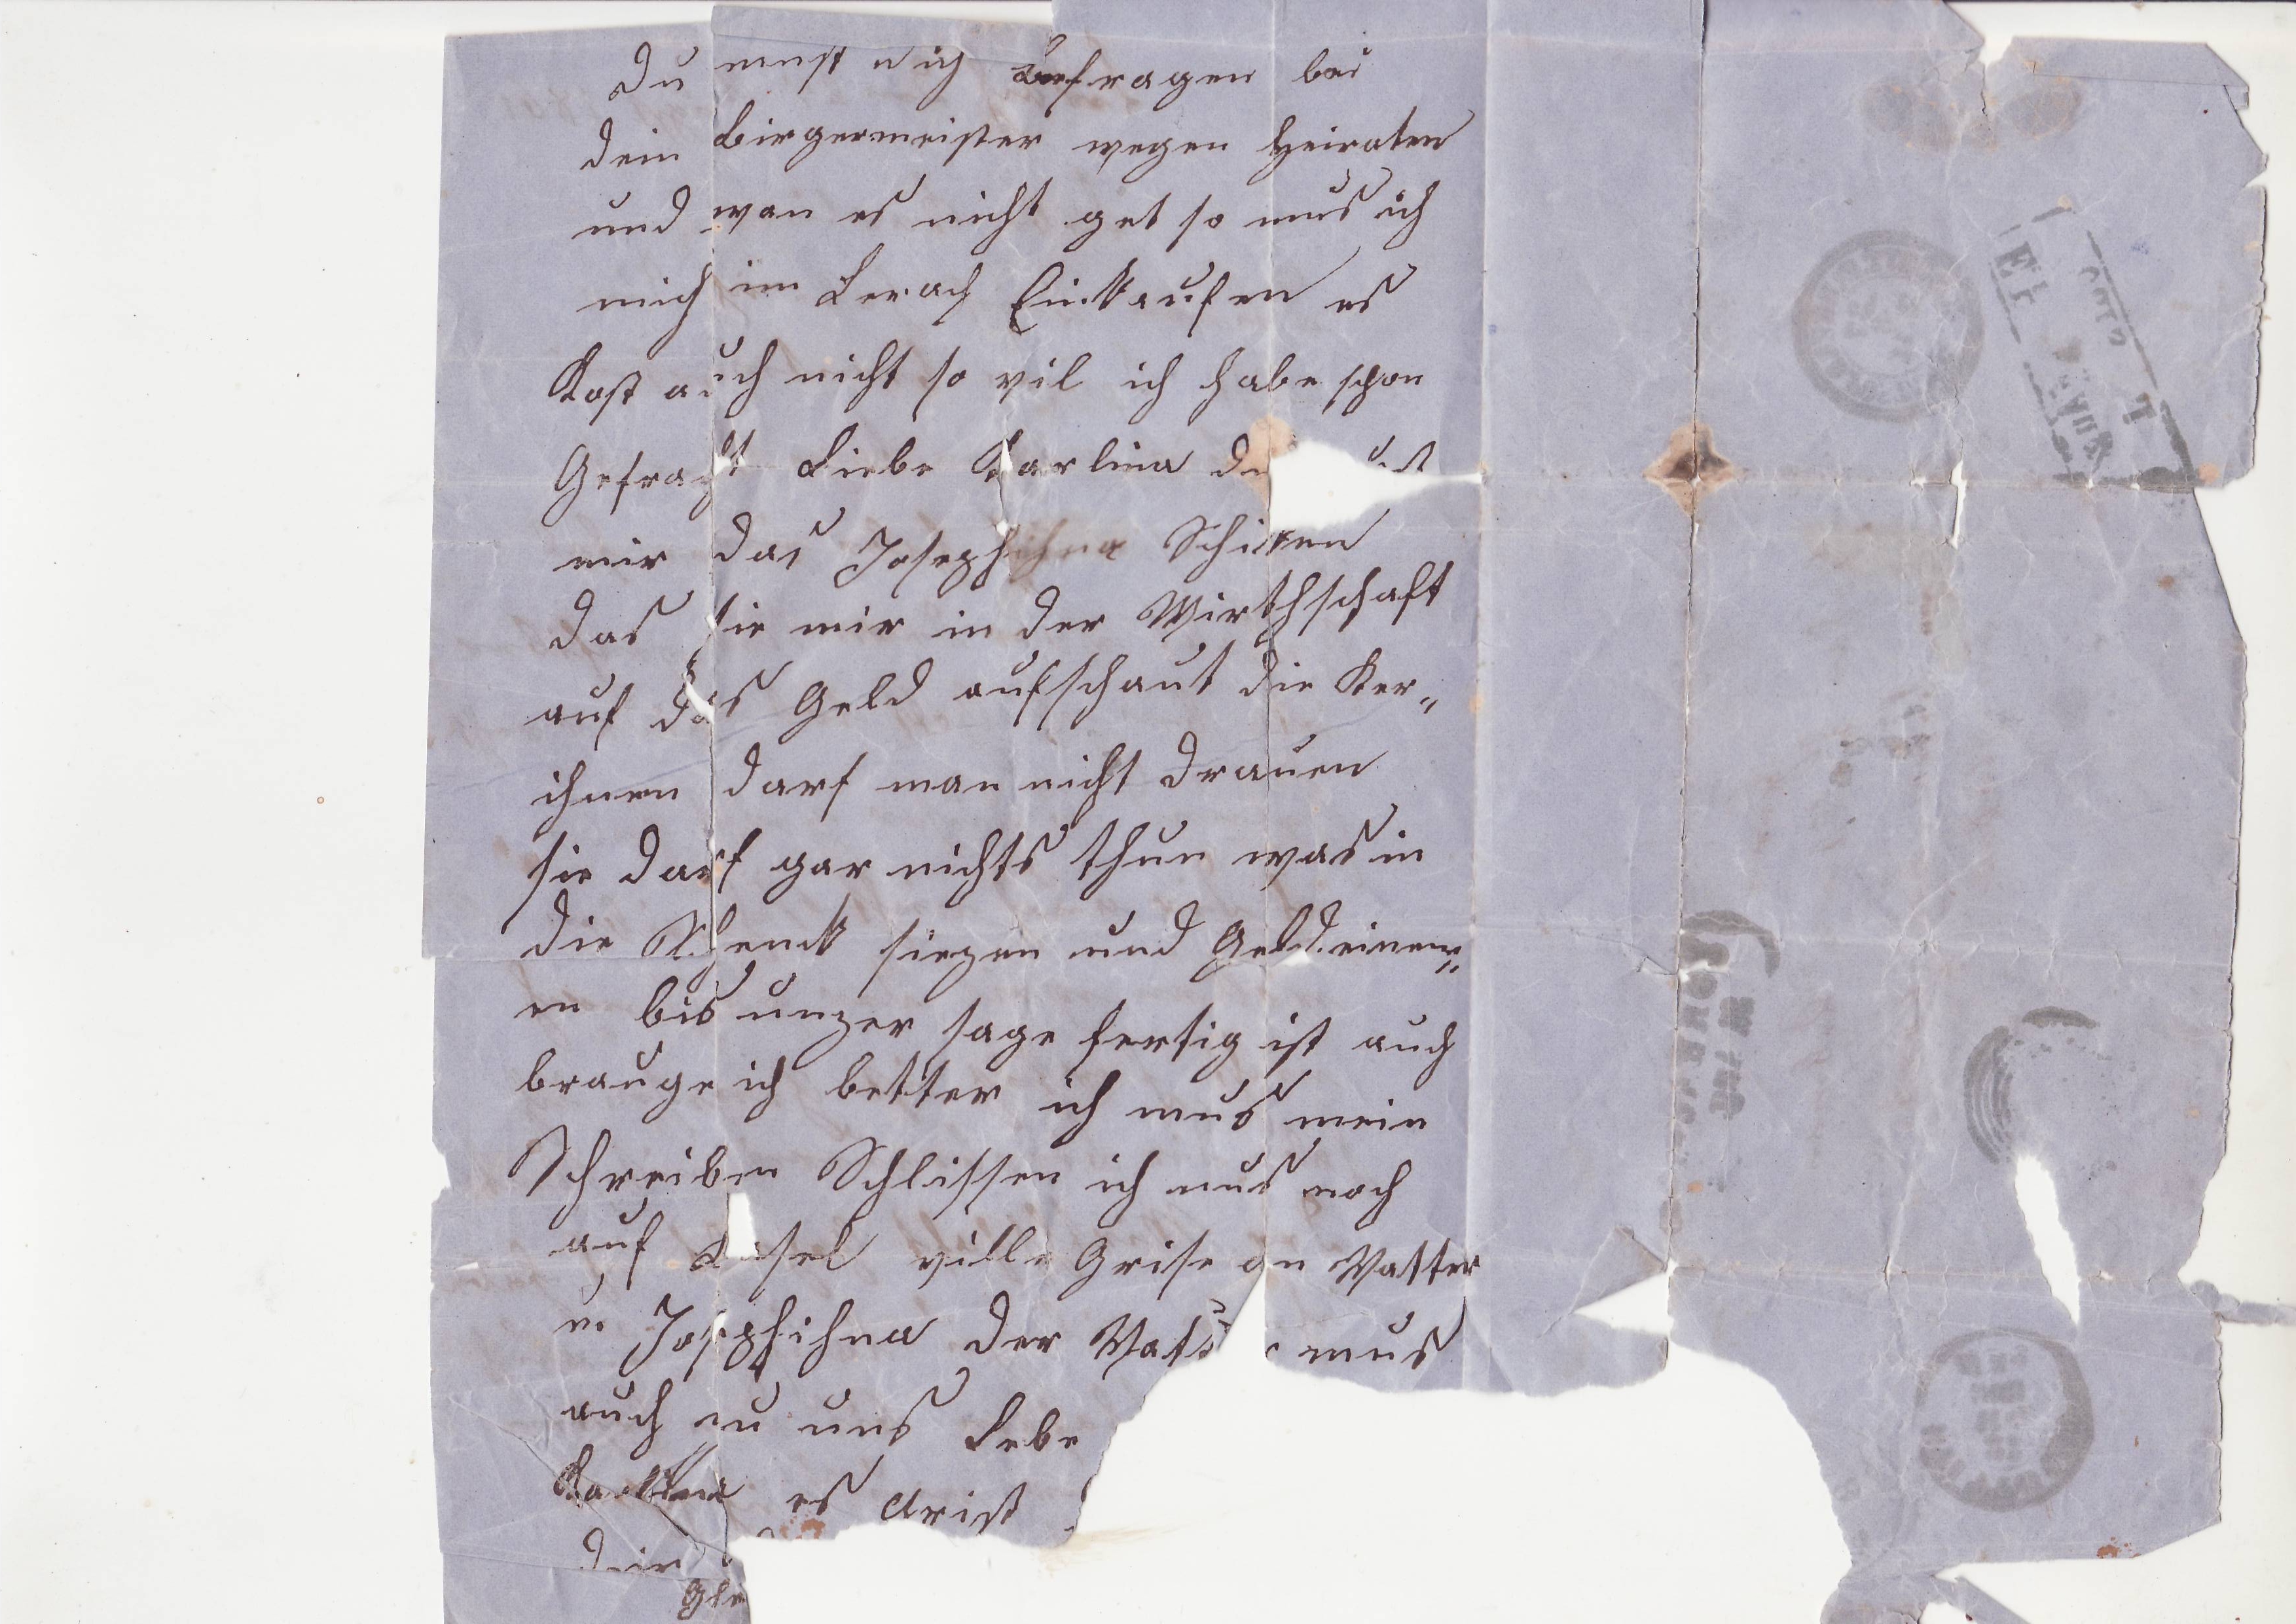 Du must dich befragen bei
dein Birgermeister wegen Heiraten
und wan es nicht get so mus ich
mich im Lerach Einkaufen es
Kost auch nicht so vil ich habe schon
Gefragt Liebe Karlina du
mir das Josephihna Schiken
das sie mir in der Wirthschaft
auf das Geld aufschaut die Ker„
ihnen darf man nicht drauen
sie darf gar nichts thun was in
die Schenck siezen und Geld einem„
en bis unzer sage fertig ist auch
brauge ich better ich mus mein
Schreiben Schlissen ich mus noch
auf Basel ville Grise an Vatter
u Josephihna der Vatter mus
auch zu uns Lebe
Karlina es Grist
dein